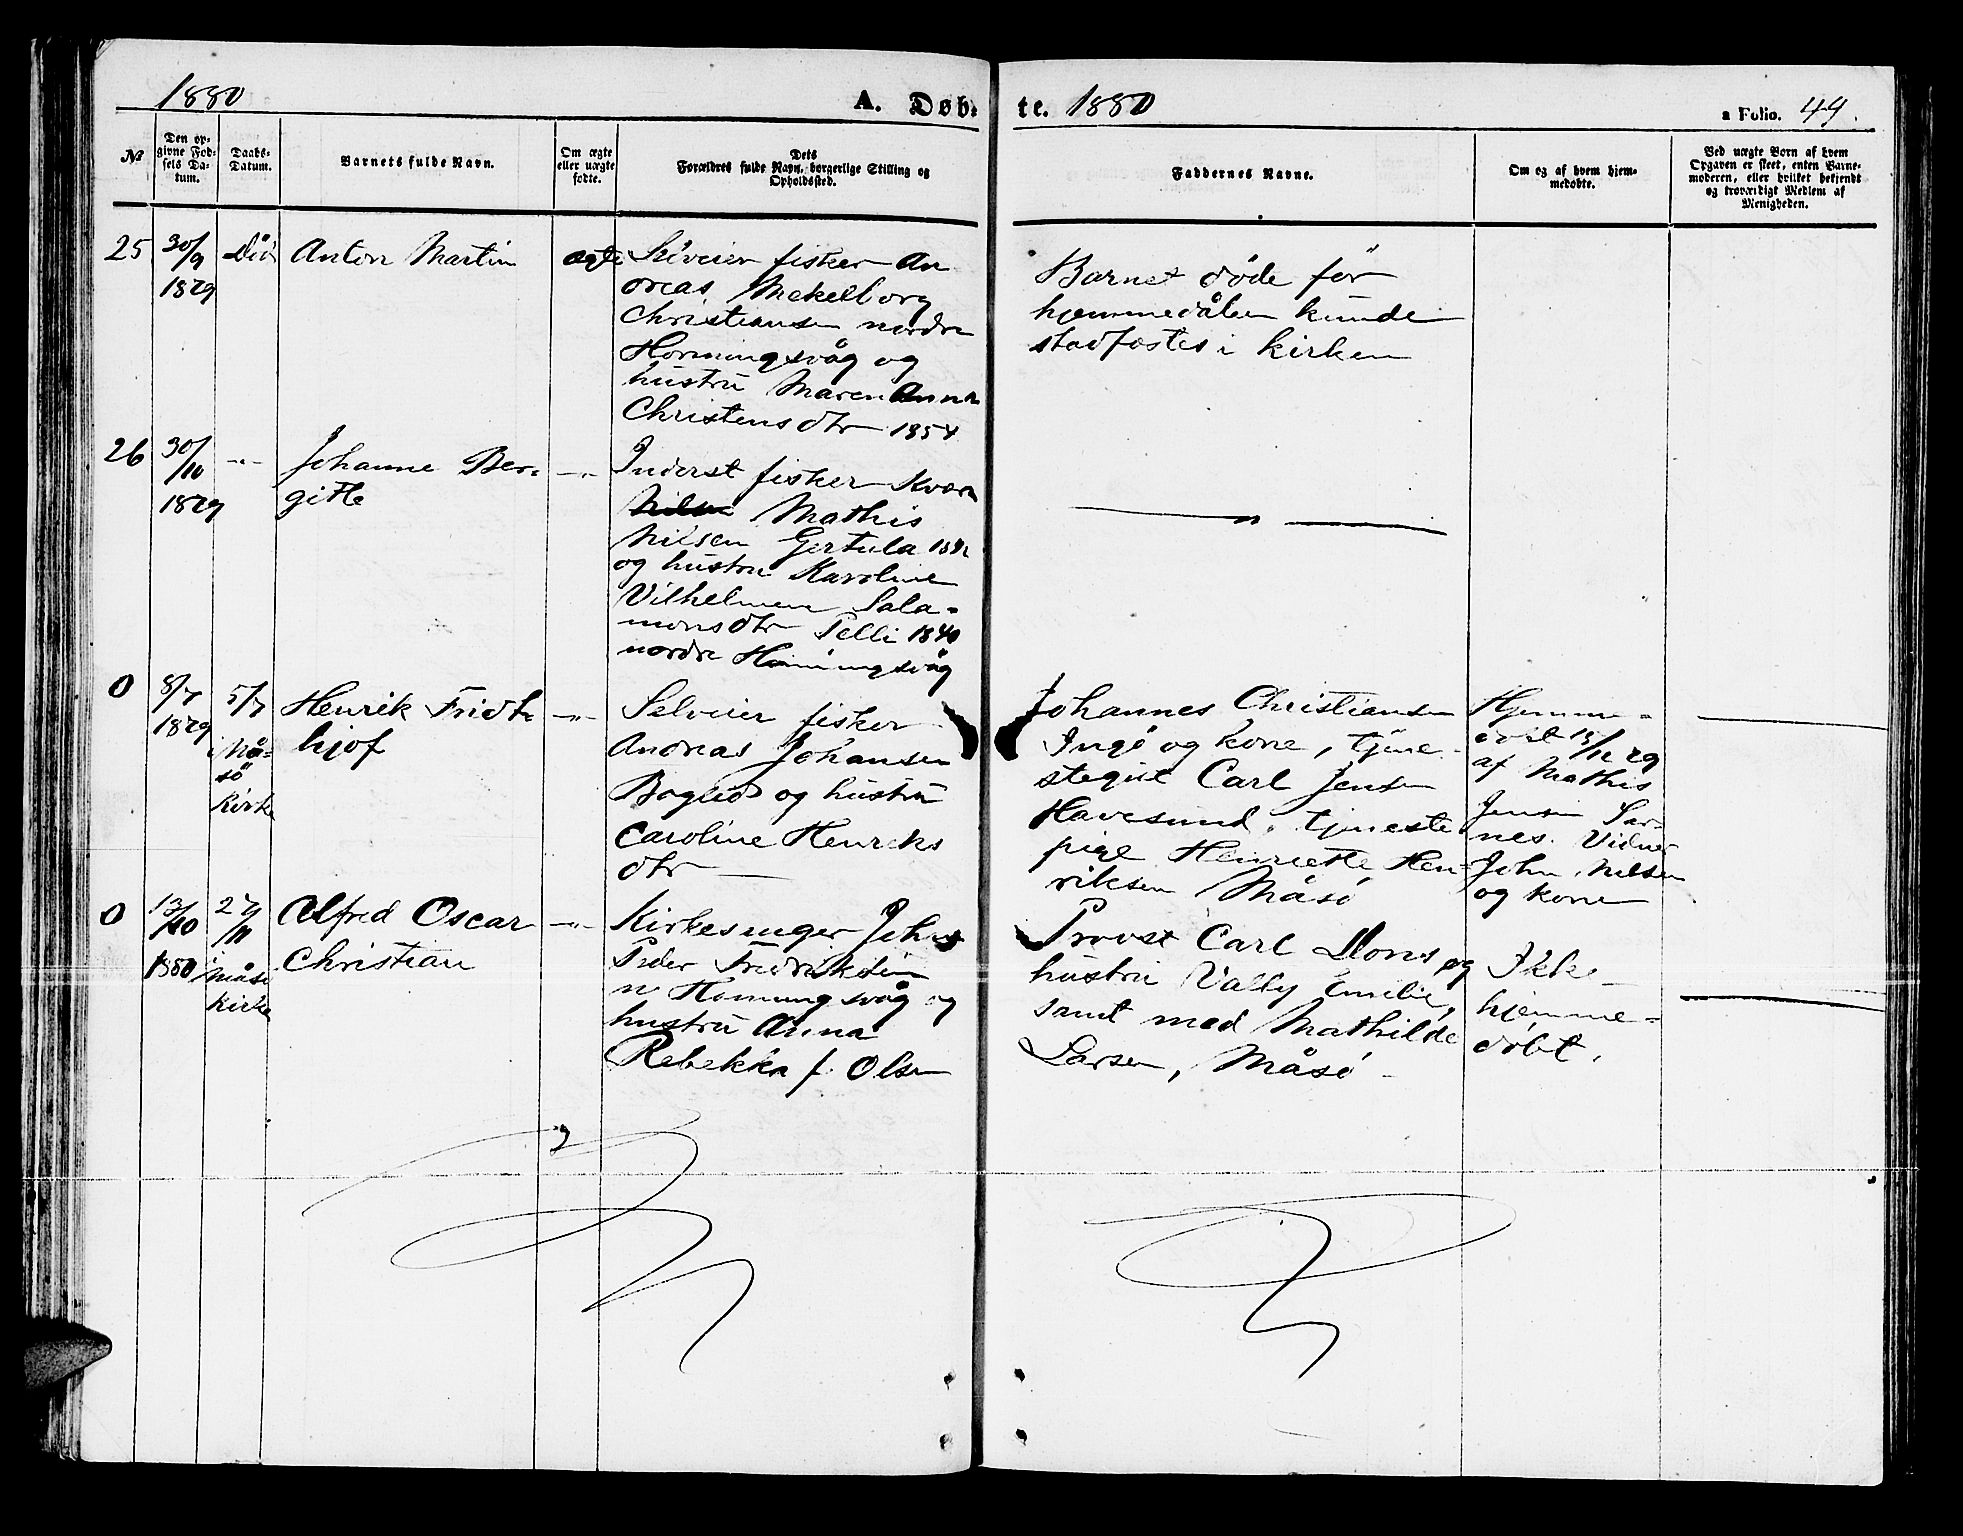 1880
A. Døb-
te. 1880
a Folio. 44.
№
Den op-
givne Fød-
sels Da-
tum.
Daabs-
Datum.
Barnets fulde Navn.
Om ægte
eller uægte
fødte.
Dets
Forældres fulde Navn, borgerlige Stilling og
Opholdssted.
Faddernes Navne.
Om og af hvem hjem-
medøbte.
Ved uægte Børn af hvem
Opgaven er skeet, enten Barne-
moderen, eller hvilket bekjendt
og troværdigt Medlem af
Menigheden.
25
30/9
1879
Död
Anton Martin
ægte
Selveier fisker An
dreas Mekelborg
Christiansen nordre
Honningsvåg og
hustru Maren Anna
Christensdtr 1854
Barnet döde för
hjemmedåben kunde
stadfæstes i kirken
26
30/10
1879
-"-
Johanne Ber-
gitte
-"-
Inderst fisker Kvæn
Nilsen Mathis
Nilsen
og hustru Karoline
Sala-
monsdtr Pelli 1840
nordre Honningsvåg
— " —
0
8/7
1879
5/7
i Må-
sö
Kirke
Henrik Fridt
hjof
-"-
Selveier fisker
Andreas Johansen
og hustru
Caroline Henriks
dtr —
Johannes Christiansen
Ingö og kone, tjene-
stegut Carl Jensen
Havesund, tjeneste
pige Henriette Hen-
riksen Måsö
Hjemme-
döbt 79
af Mathis
Jensen Sar-
nes. Vidner
John Nilsen
og kone
0
13/10
1880
27/11
i Måsö
Kirke
Alfred Oscar
Christian
-"-
Kirkesanger Johs
Peder Fredriksen
n Honningsvåg og
hustru Anna
Rebekka f. Olsen
Provst Carl og
hustru Vally Emilie,
samt mad Mathilde
Larsen, Måsö -
Ikke
hjemme-
döbt.